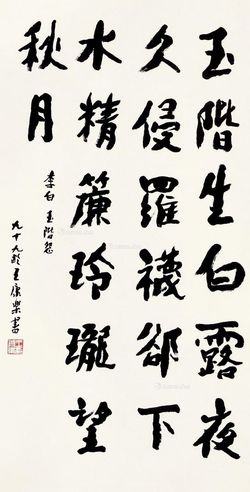 玉階生白露夜
久侵羅襪卻下
水精簾玲瓏望
秋月
李白 玉階怨
九十九齡王康樂書